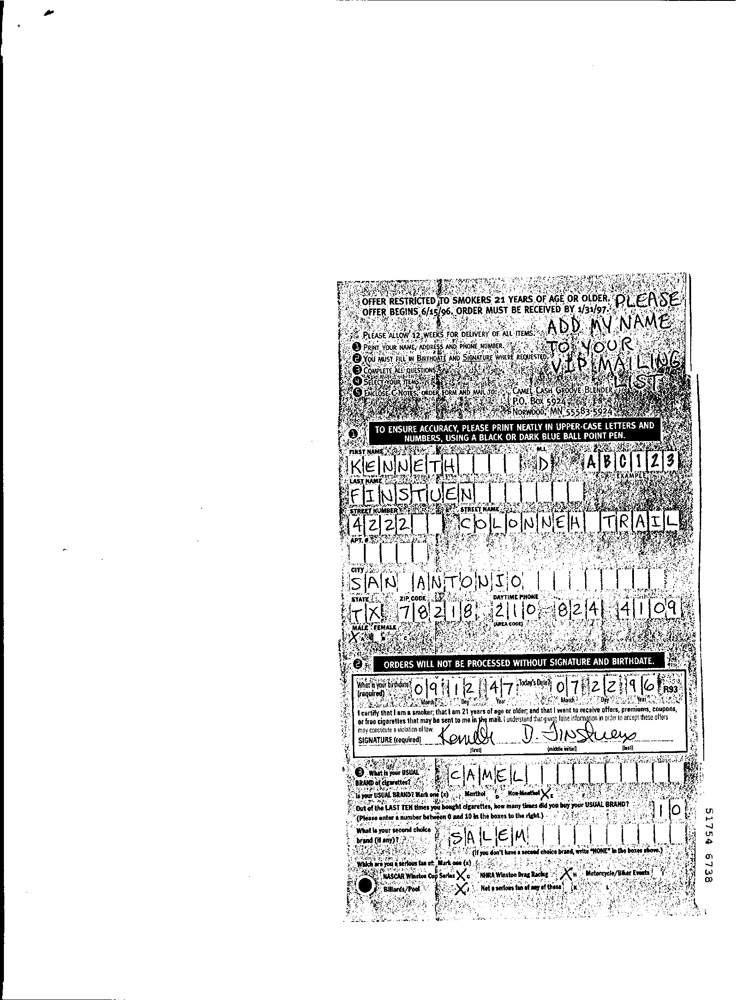 OFFER RESTRICTED TO SMOKERS 21 YEARS OF AGE OR OLDER.
OFFER BEGINS 6/15/96. ORDER MUST BE RECEIVED BY 1/31/97.
PLEASE
ADD MY NAME
TO YOUR
VIP MAILING
LIST
PLEASE ALLOW 12 WEEKS FOR DELIVERY OF ALL ITEMS.
1 PRINT YOUR NAME, ADDRESS AND PHONE NUMBER.
2 YOU MUST FILL IN BIRTHDATE AND SIGNATURE WHERE REQUESTED.
3 COMPLETE ALL QUESTIONS.
4 SELECT YOUR ITEMS.
5 ENCLOSE C-NOTES, ORDER FORM AND MAIL TO:
CAMEL CASH GROOVE BLENDER
P.O. BOX 5924
NORWOOD, MN 55583-5924
1 TO ENSURE ACCURACY, PLEASE PRINT NEATLY IN UPPER-CASE LETTERS AND
NUMBERS, USING A BLACK OR DARK BLUE BALL POINT PEN.
FIRST NAME M.I.
KENNETH D ABC123
LAST NAME EXAMPLE
FINSTUEN
STREET NUMBER STREET NAME
4222 COLONNEH TRAIL
APT. #
CITY
SAN ANTONIO
STATE ZIP CODE DAYTIME PHONE
TX 78218 210 824 4109
MALE FEMALE (AREA CODE)
X
2 ORDERS WILL NOT BE PROCESSED WITHOUT SIGNATURE AND BIRTHDATE.
What is your birthdate? (required) 09 12 47 Today's Date? 07 22 96 R93
Month Day Year Month Day Year
I certify that I am a smoker; that I am 21 years of age or older; and that I want to receive offers, premiums, coupons,
or free cigarettes that may be sent to me in the mail. I understand that giving false information in order to accept these offers
may constitute a violation of law.
SIGNATURE (required) Kenneth D. Finstuen
(first) (middle initial) (last)
3 What is your USUAL
BRAND of cigarettes? CAMEL
Is your USUAL BRAND? Mark one (x) Menthol Non-Menthol X
Out of the LAST TEN times you bought cigarettes, how many times did you buy your USUAL BRAND?
(Please enter a number between 0 and 10 in the boxes to the right.) 10
What is your second choice
brand (if any)? SALEM
(If you don't have a second choice brand, write "NONE" in the boxes above.)
Which are you a serious fan of: Mark one (x)
NASCAR Winston Cup Series X NHRA Winston Drag Racing X Motorcycle/Biker Events
Billiards/Pool X Not a serious fan of any of these
51754 6738